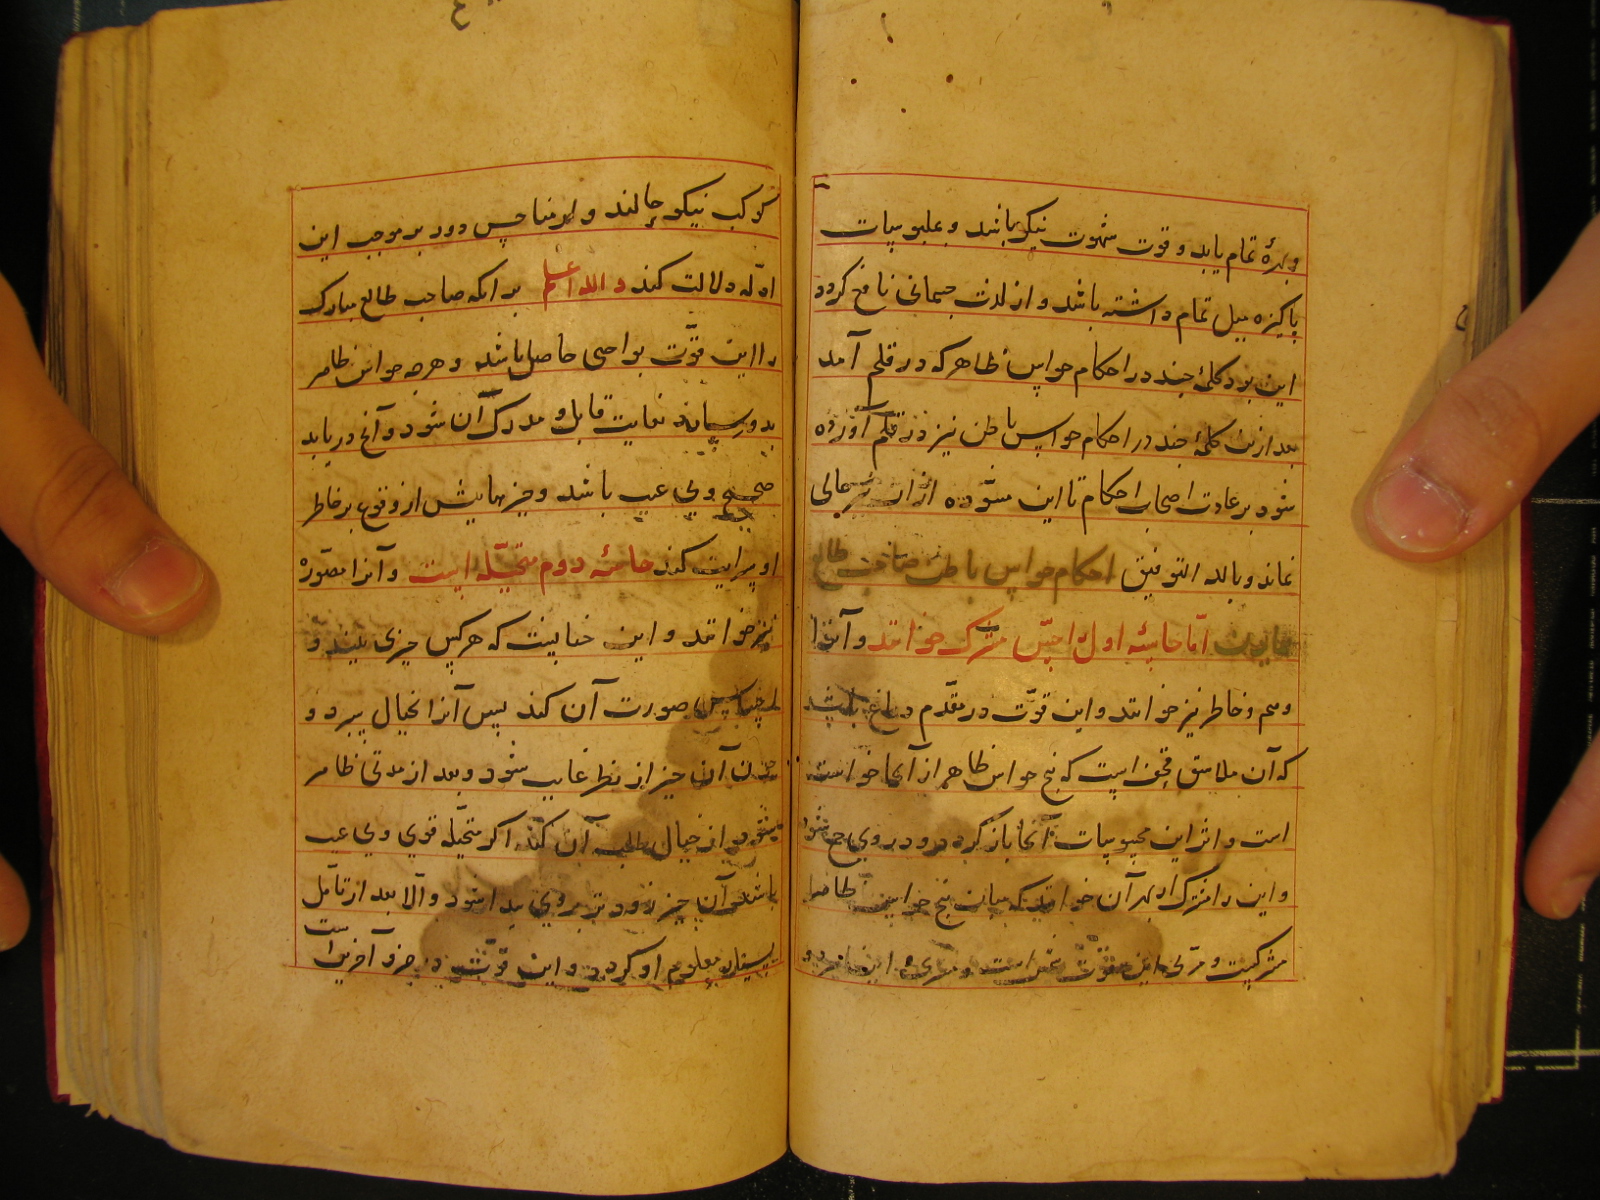 و بهرهٔ تمام یابد و قوت شهوت نیکو باشد و بملبوسات
پاکیزه میل تمام داشته باشد و از لذت جسمانی نافع کردد
این بود کلمهٔ چند در احکام حواس ظاهر که در قلم آمد
بعد ازین کلمهٔ چند در احکام حواس باطن نیز در قلم آورده
شود بر عادت اصحاب احکام تا این مسوّده از ان نیز خالی
نماند و بالله التوفیق احکام حواس باطن صاحب طالع
امّا حاسّهٔ اول احسّ مشترک خوانند و آنرا
وهم و خاطر نیز خوانند و این قوّت در مقدّم دماغ باشد
که آن ملاسق قحف است که پنج حواس ظاهر از آنجا خواسته
است و اثر این محبوسات آنجا باز کردد و در وی جمع شود
و این را مشترک از بهر آن خوانند که میان پنج حواس ظاهر
مشترکست و مربّی این قوّت قمر است و
کوکب نیکو حالند و از مناحس دور بر موجب این
ادلّه دلالت کند و الله اعلم بر انکه صاحب طالع مبارک
را این قوّت بواجبی حاصل باشد و هرچه حواس ظاهر
بدو رساند نغایت قابل و مدرک آن شود و آنچ دریابد
صحیح و بی عیب باشد و چیزهایش از وقوع بر خاطر
او سرایت کند حاسّهٔ دوم متخیّله است و آنرا مصوّره
نیز خوانند و این چنانست که هرکس چیزی بیند و
احساس صورت آن کند پس آنرا بخیال سپرد و
چون آن چیز از نظر غایب شود و بعد از مدتی ظاهر
شود از خیال طلب آن کند اکر متخیّله قوی و بی عیب
باشد آن چیز زودتر بروی پیدا شود و الّا بعد از تأمّل
بسیار معلوم او کردد و این قوّت در جزو آخرین است